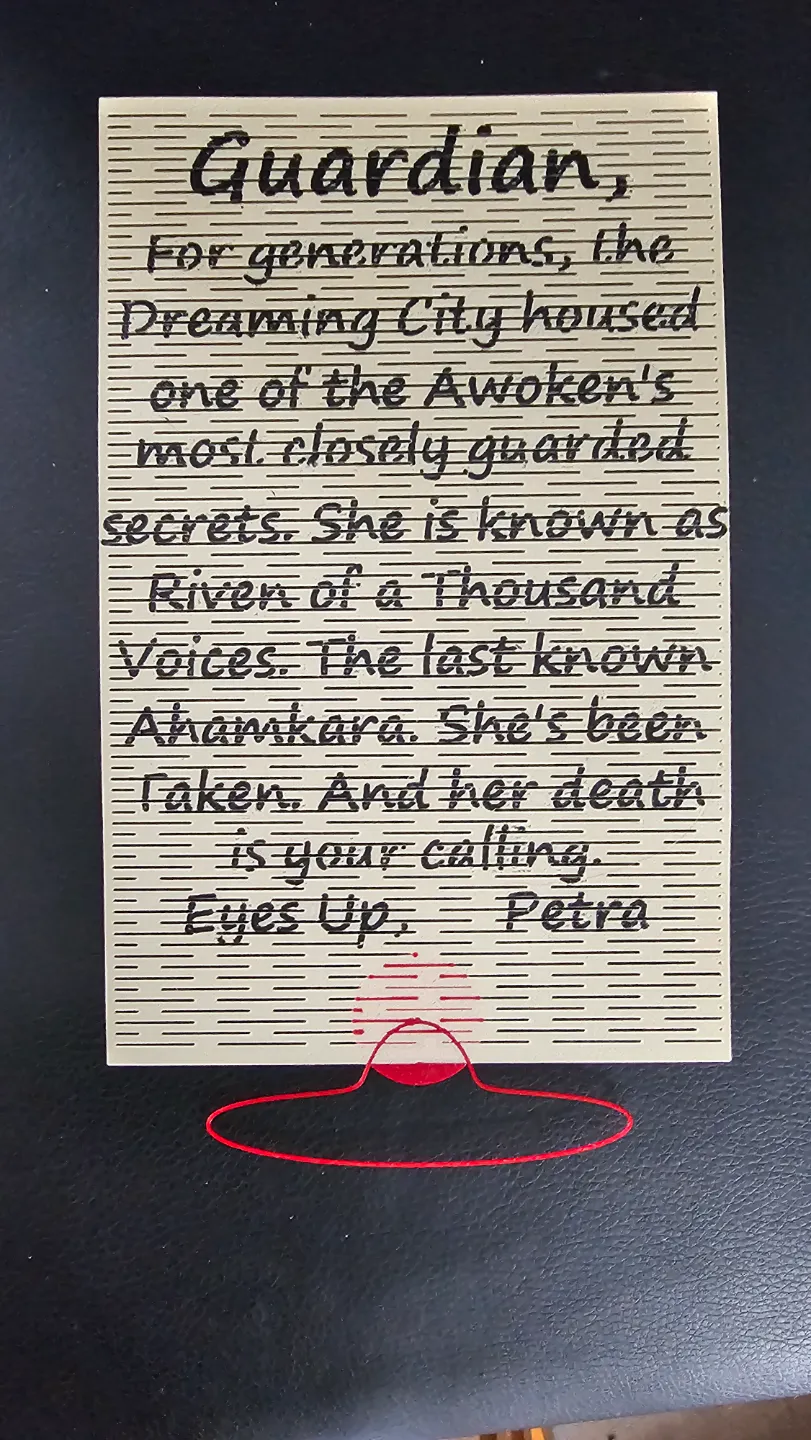 Guardian,
For generations, the
Dreaming City housed
one of the Awoken's
most closely guarded
secrets. She is known as
Riven of a Thousand
Voices. The last known
Ahamkara. She's been
Taken. And her death
is your calling.
Eyes Up, Petra